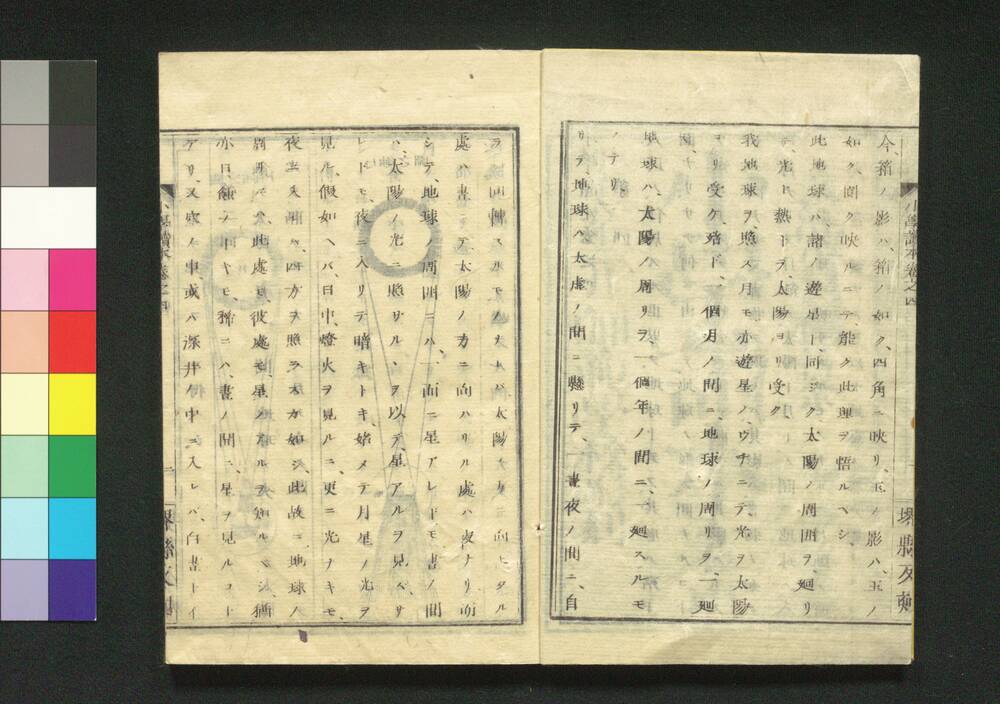 今、箱ノ影ハ、箱ノ如ク、四角ニ映リ、玉ノ影ハ、玉ノ
如ク、圓ク映ルニテ、能ク此理ヲ悟ルヘシ、
此地球ハ、諸ノ遊星ト、同ジク、太陽ノ周囲ヲ、廻リ
光ト熱トヲ、太陽ヨリ受ク、
我地球ヲ、照ス月モ、亦遊星ノ、ウチニテ、光ヲ太陽
ヨリ受ケ、殆ド、一個月ノ間ニ、地球ノ周リヲ、一廻
地球ハ、太陽ノ周リヲ、一個年ノ間ニ、一廻スルモ
ノナリ、
リテ地球ハ太虚ノ間ニ懸リテ、一晝夜ノ間ニ、自
ラ一回轉スルモノナレハ、太陽ノ方ニ向ヒタル
處ハ晝ニテ、太陽ノ方ニ向ハザル處ハ夜ナリ、而
シテ、地球ノ周囲ニハ、一面ニ星アレドモ、晝ノ間
ハ、太陽ノ光ニ照サルヽヲ以テ、星アルヲ見ヘザ
レドモ、夜ニ入リテ暗キトキ、始メテ月星ノ光ヲ
見ル、假如ヘバ、日中、燈火ヲ見ルニ、更ニ光ナキモ、
夜ニ入リ
此處モ、彼處モ、星ノアルヲ知ルベシ、猶
亦日蝕ノトキモ、稀ニハ、晝ノ間ニ、星ヲ見ルコト
アリ、又穴ノ中或ハ深井ノ中ニ入レバ、白晝トイ
小學讀本卷之四
一
堺縣反刻
小學讀本卷之四
二
堺縣反刻